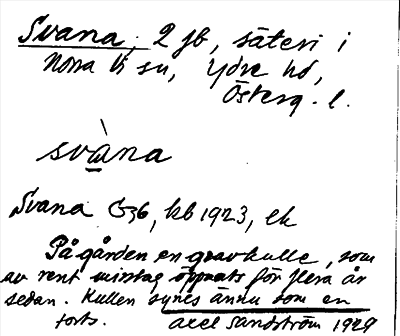 Svana, 2 jb, säteri i
Norra Vi sn, Ydre hd,
Österg. l.
svàna
Svana G36, kb 1923, ek
På gården en gravkulle, som
av rent misstag öppnats för flera år
sedan. Kullen synes ännu som en
forts. Axel Sandström 1929